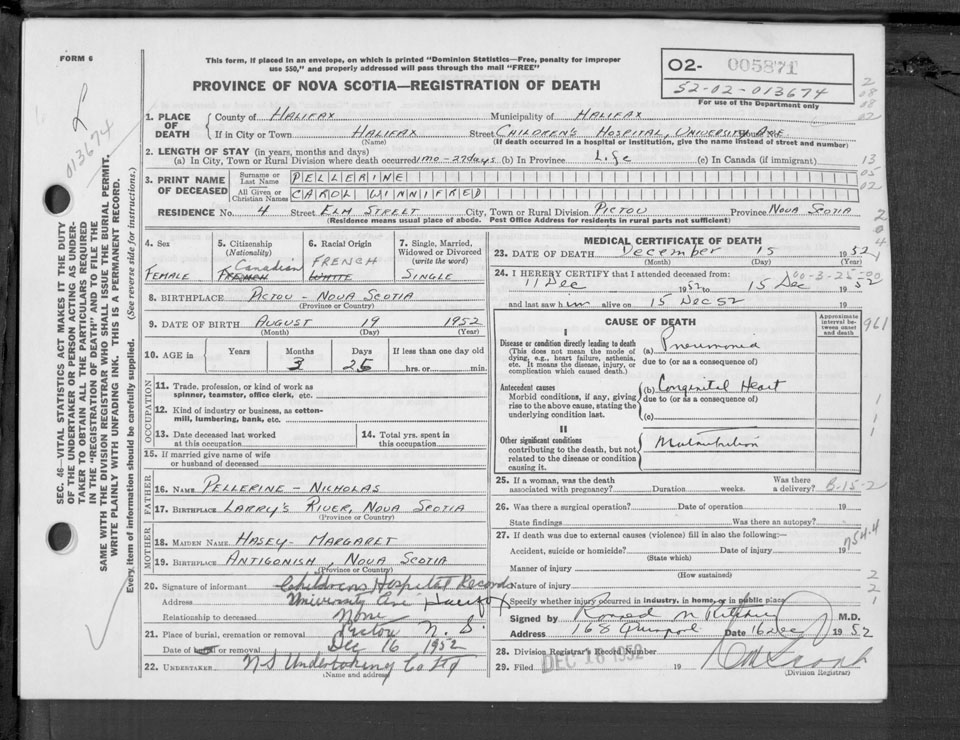 FORM 6
This form, if placed in an envelope, on which is printed "Dominion Statistics—Free, penalty for improper
use $50," and properly addressed will pass through the mail "FREE"
PROVINCE OF NOVA SCOTIA—REGISTRATION OF DEATH
O2- 005871
52-02-013674
For use of the Department only
013674
SEC. 46—VITAL STATISTICS ACT MAKES IT THE DUTY
OF THE UNDERTAKER OR PERSON ACTING AS UNDER-
TAKER TO OBTAIN ALL THE PARTICULARS REQUIRED
IN THE "REGISTRATION OF DEATH" AND TO FILE THE
SAME WITH THE DIVISION REGISTRAR WHO SHALL ISSUE THE BURIAL PERMIT.
WRITE PLAINLY WITH UNFADING INK. THIS IS A PERMANENT RECORD.
Every item of information should be carefully supplied. (See reverse side for instructions.)
1. PLACE OF DEATH
County of HALIFAX Municipality of HALIFAX
If in City or Town HALIFAX Street CHILDREN'S HOSPITAL, UNIVERSITY AVE
(Name) (If death occurred in a hospital or institution, give the name instead of street and number)
2. LENGTH OF STAY (in years, months and days)
(a) In City, Town or Rural Division where death occurred 1mo-27days (b) In Province Life (c) In Canada (if immigrant)
3. PRINT NAME OF DECEASED
Surname or Last Name PELLERINE
All Given or Christian Names CAROL WINNIFRED
RESIDENCE No. 4 Street ELM STREET City, Town or Rural Division PICTOU Province NOVA SCOTIA
(Residence means usual place of abode. Post Office Address for residents in rural parts not sufficient)
4. Sex FEMALE
5. Citizenship (Nationality) Canadian FRENCH
6. Racial Origin FRENCH WHITE
7. Single, Married, Widowed or Divorced (write the word) SINGLE
8. BIRTHPLACE PICTOU - NOVA SCOTIA
(Province or Country)
9. DATE OF BIRTH AUGUST 19 1952
(Month) (Day) (Year)
10. AGE in Years Months 3 Days 26 If less than one day old hrs. or min.
OCCUPATION
11. Trade, profession, or kind of work as
spinner, teamster, office clerk, etc.
12. Kind of industry or business, as cotton-
mill, lumbering, bank, etc.
13. Date deceased last worked
at this occupation
14. Total yrs. spent in
this occupation
15. If married give name of wife
or husband of deceased
FATHER
16. NAME PELLERINE - NICHOLAS
17. BIRTHPLACE LARRY'S RIVER, NOVA SCOTIA
(Province or Country)
MOTHER
18. MAIDEN NAME HASEY - MARGARET
19. BIRTHPLACE ANTIGONISH, NOVA SCOTIA
(Province or Country)
20. Signature of informant Childrens Hospital Records
Address University Ave Halifax
Relationship to deceased None
21. Place of burial, cremation or removal Pictou N.S.
Date of burial or removal Dec 16 1952
22. UNDERTAKER N S Undertaking Co Ltd
(Name and address)
MEDICAL CERTIFICATE OF DEATH
23. DATE OF DEATH December 15 1952
(Month) (Day)
24. I HEREBY CERTIFY that I attended deceased from:
11 Dec 1952 to 15 Dec 1952
00-3-25-00
and last saw him alive on 15 Dec 52 19
CAUSE OF DEATH
Approximate interval between onset and death
I
Disease or condition directly leading to death
(This does not mean the mode of
dying, e.g., heart failure, asthenia,
etc. It means the disease, injury, or
complication which caused death.)
(a) Pneumonia
due to (or as a consequence of)
Antecedent causes
Morbid conditions, if any, giving
rise to the above cause, stating the
underlying condition last.
(b) Congenital Heart
due to (or as a consequence of)
(c)
II
Other significant conditions
contributing to the death, but not
related to the disease or condition
causing it.
Malnutrition
25. If a woman, was the death
associated with pregnancy? Duration weeks. Was there
a delivery? B-15-2
26. Was there a surgical operation? Date of operation 19
State findings Was there an autopsy?
27. If death was due to external causes (violence) fill in also the following:—
Accident, suicide or homicide? Date of injury 19
(State which)
754.4
Manner of injury
(How sustained)
Nature of injury
Specify whether injury occurred in industry, in home, or in public place
Signed by Ronald M Ritchie M.D.
Address 168 Quinpool Date 16 Dec 1952
28. Division Registrar's Record Number
29. Filed DEC 18 1952 19
(Division Registrar)
2
08
08
02
13
05
02
2
0
4
1
961
1
1
1
2
2
1